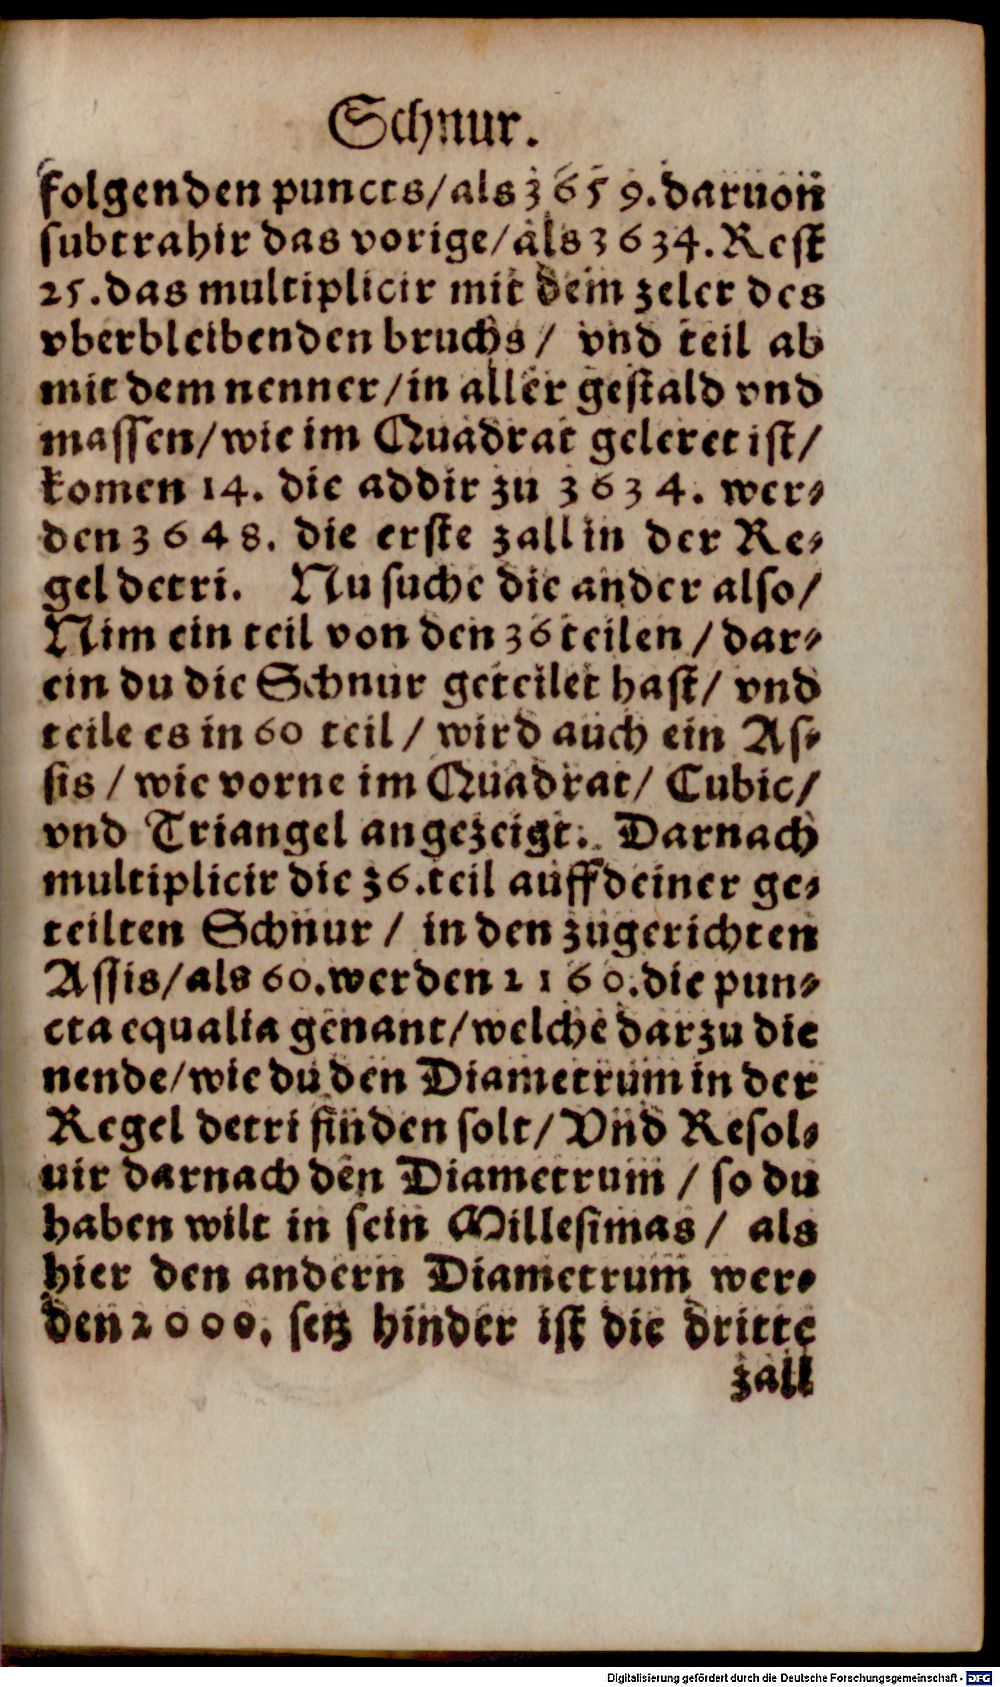 Schnur.
folgenden puncts/als 3659. daruon
subtrahir das vorige/als 3634. Rest
25. das multiplicir mit dem zeler des
vberbleibenden bruchs/ vnd teil ab
mit dem nenner/in aller gestald vnd
massen/wie im Quadrat geleret ist/
komen 14. die addir zu 3634. wer⸗
den 3648. die erste zall in der Re⸗
gel detri. Nu suche die ander also/
Nim ein teil von den 36 teilen/dar⸗
ein du die Schnur geteilet hast/ vnd
teile es in 60 teil/ wird auch ein As⸗
sis/wie vorne im Quadrat/ Cubic/
vnd Triangel angezeigt. Darnach
multiplicir die 36. teil auff deiner ge⸗
teilten Schnur/ in den zugerichten
Assis/als 60. werden 2160. die pun⸗
cta equalia genant/welche darzu die
nende/wie du den Diametrum in der
Regel detri finden solt/Vnd Resol⸗
uir darnach den Diametrum/ so du
haben wilt in sein Millesimas/ als
hier den andern Diametrum wer⸗
den 2000. setz hinder ist die dritte
zall
Digitalisierung gefördert durch die Deutsche Forschungsgemeinschaft - DFG